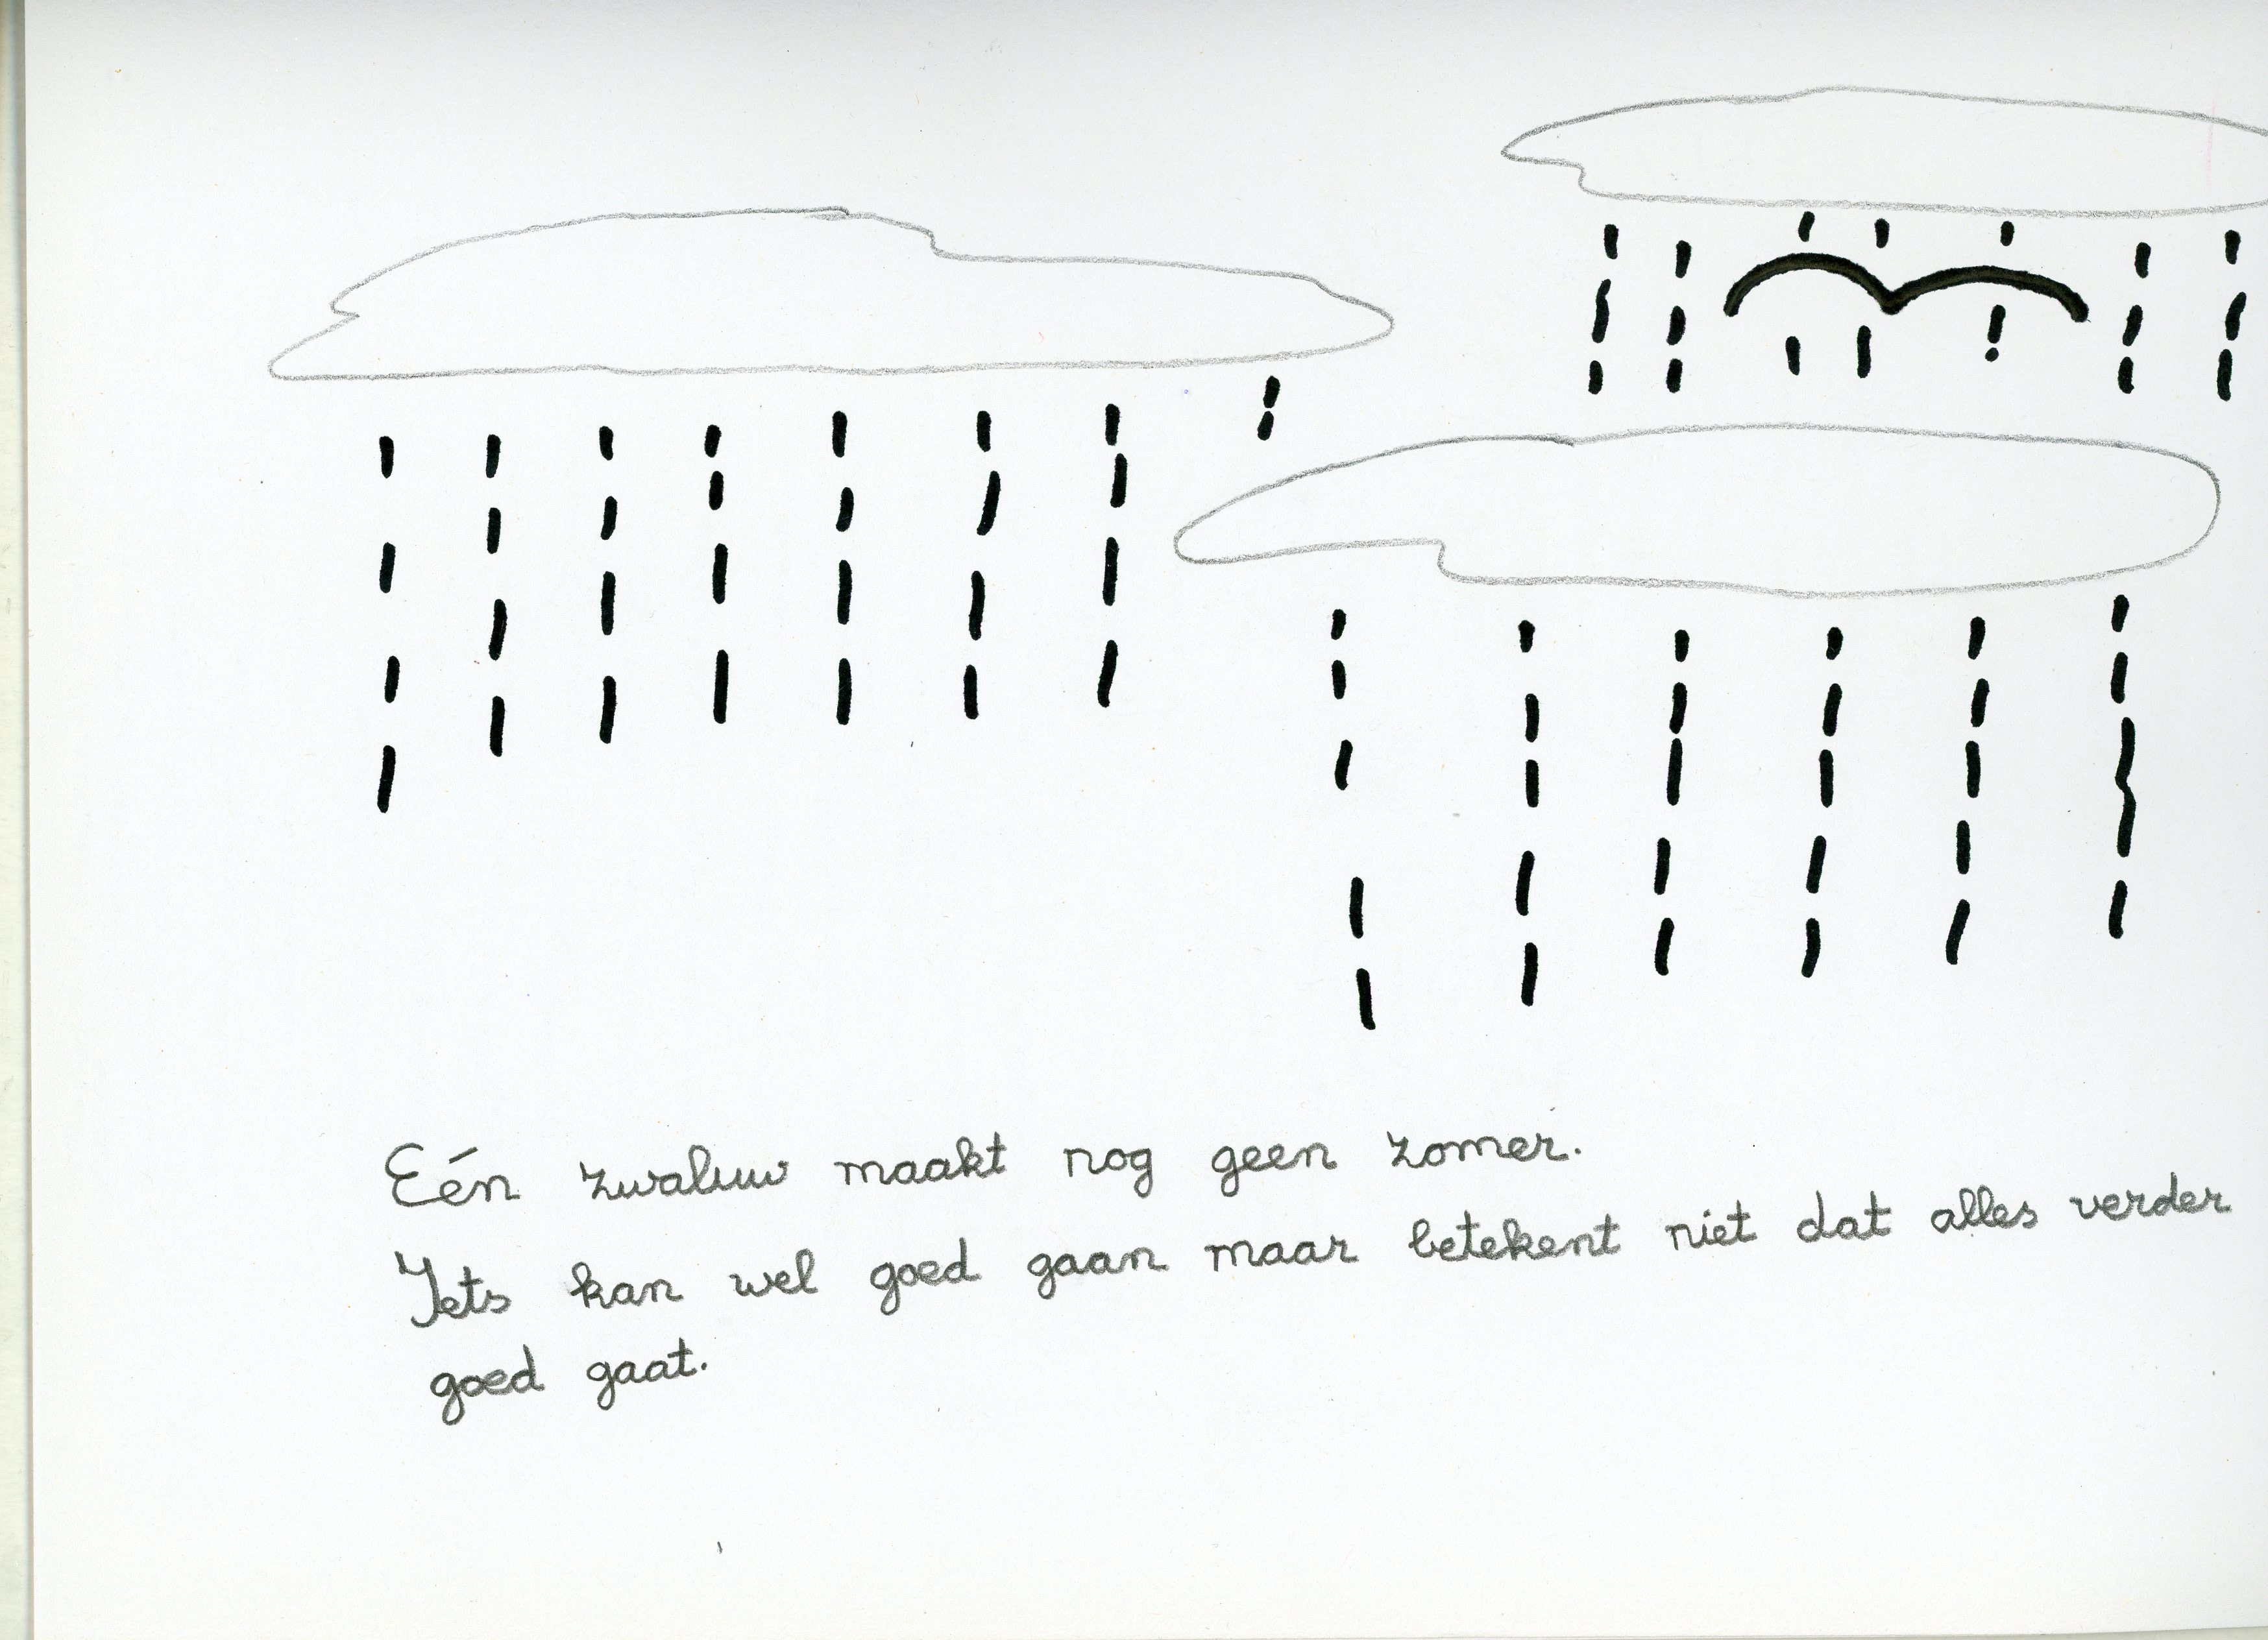 Eén zwaluw maakt nog geen zomer.
Iets kan wel goed gaan maar betekent niet dat alles verder
goed gaat.